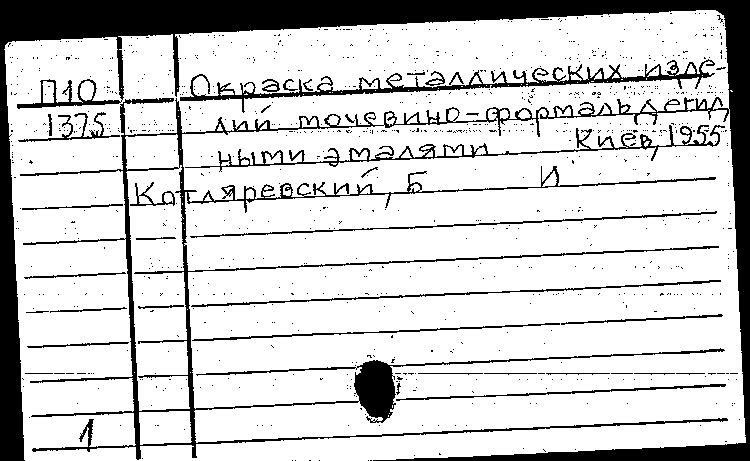 П10 Окраска металлических изде-
1375 лий мочевино-формальдегид
ными эмалями. Киев, 1955
Котляревский, Б И
1